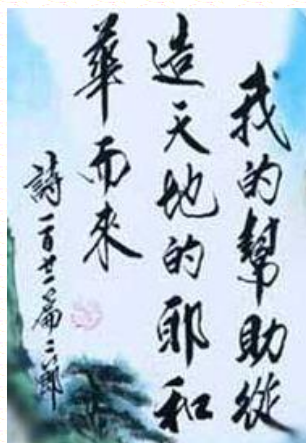 我的幫助從
造天地的耶和
華而來
詩一百廿一篇二節